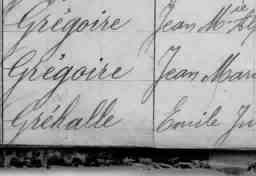 Grégoire Jean M.ie
Grégoire Jean Mari
Gréhalle Emile Ju